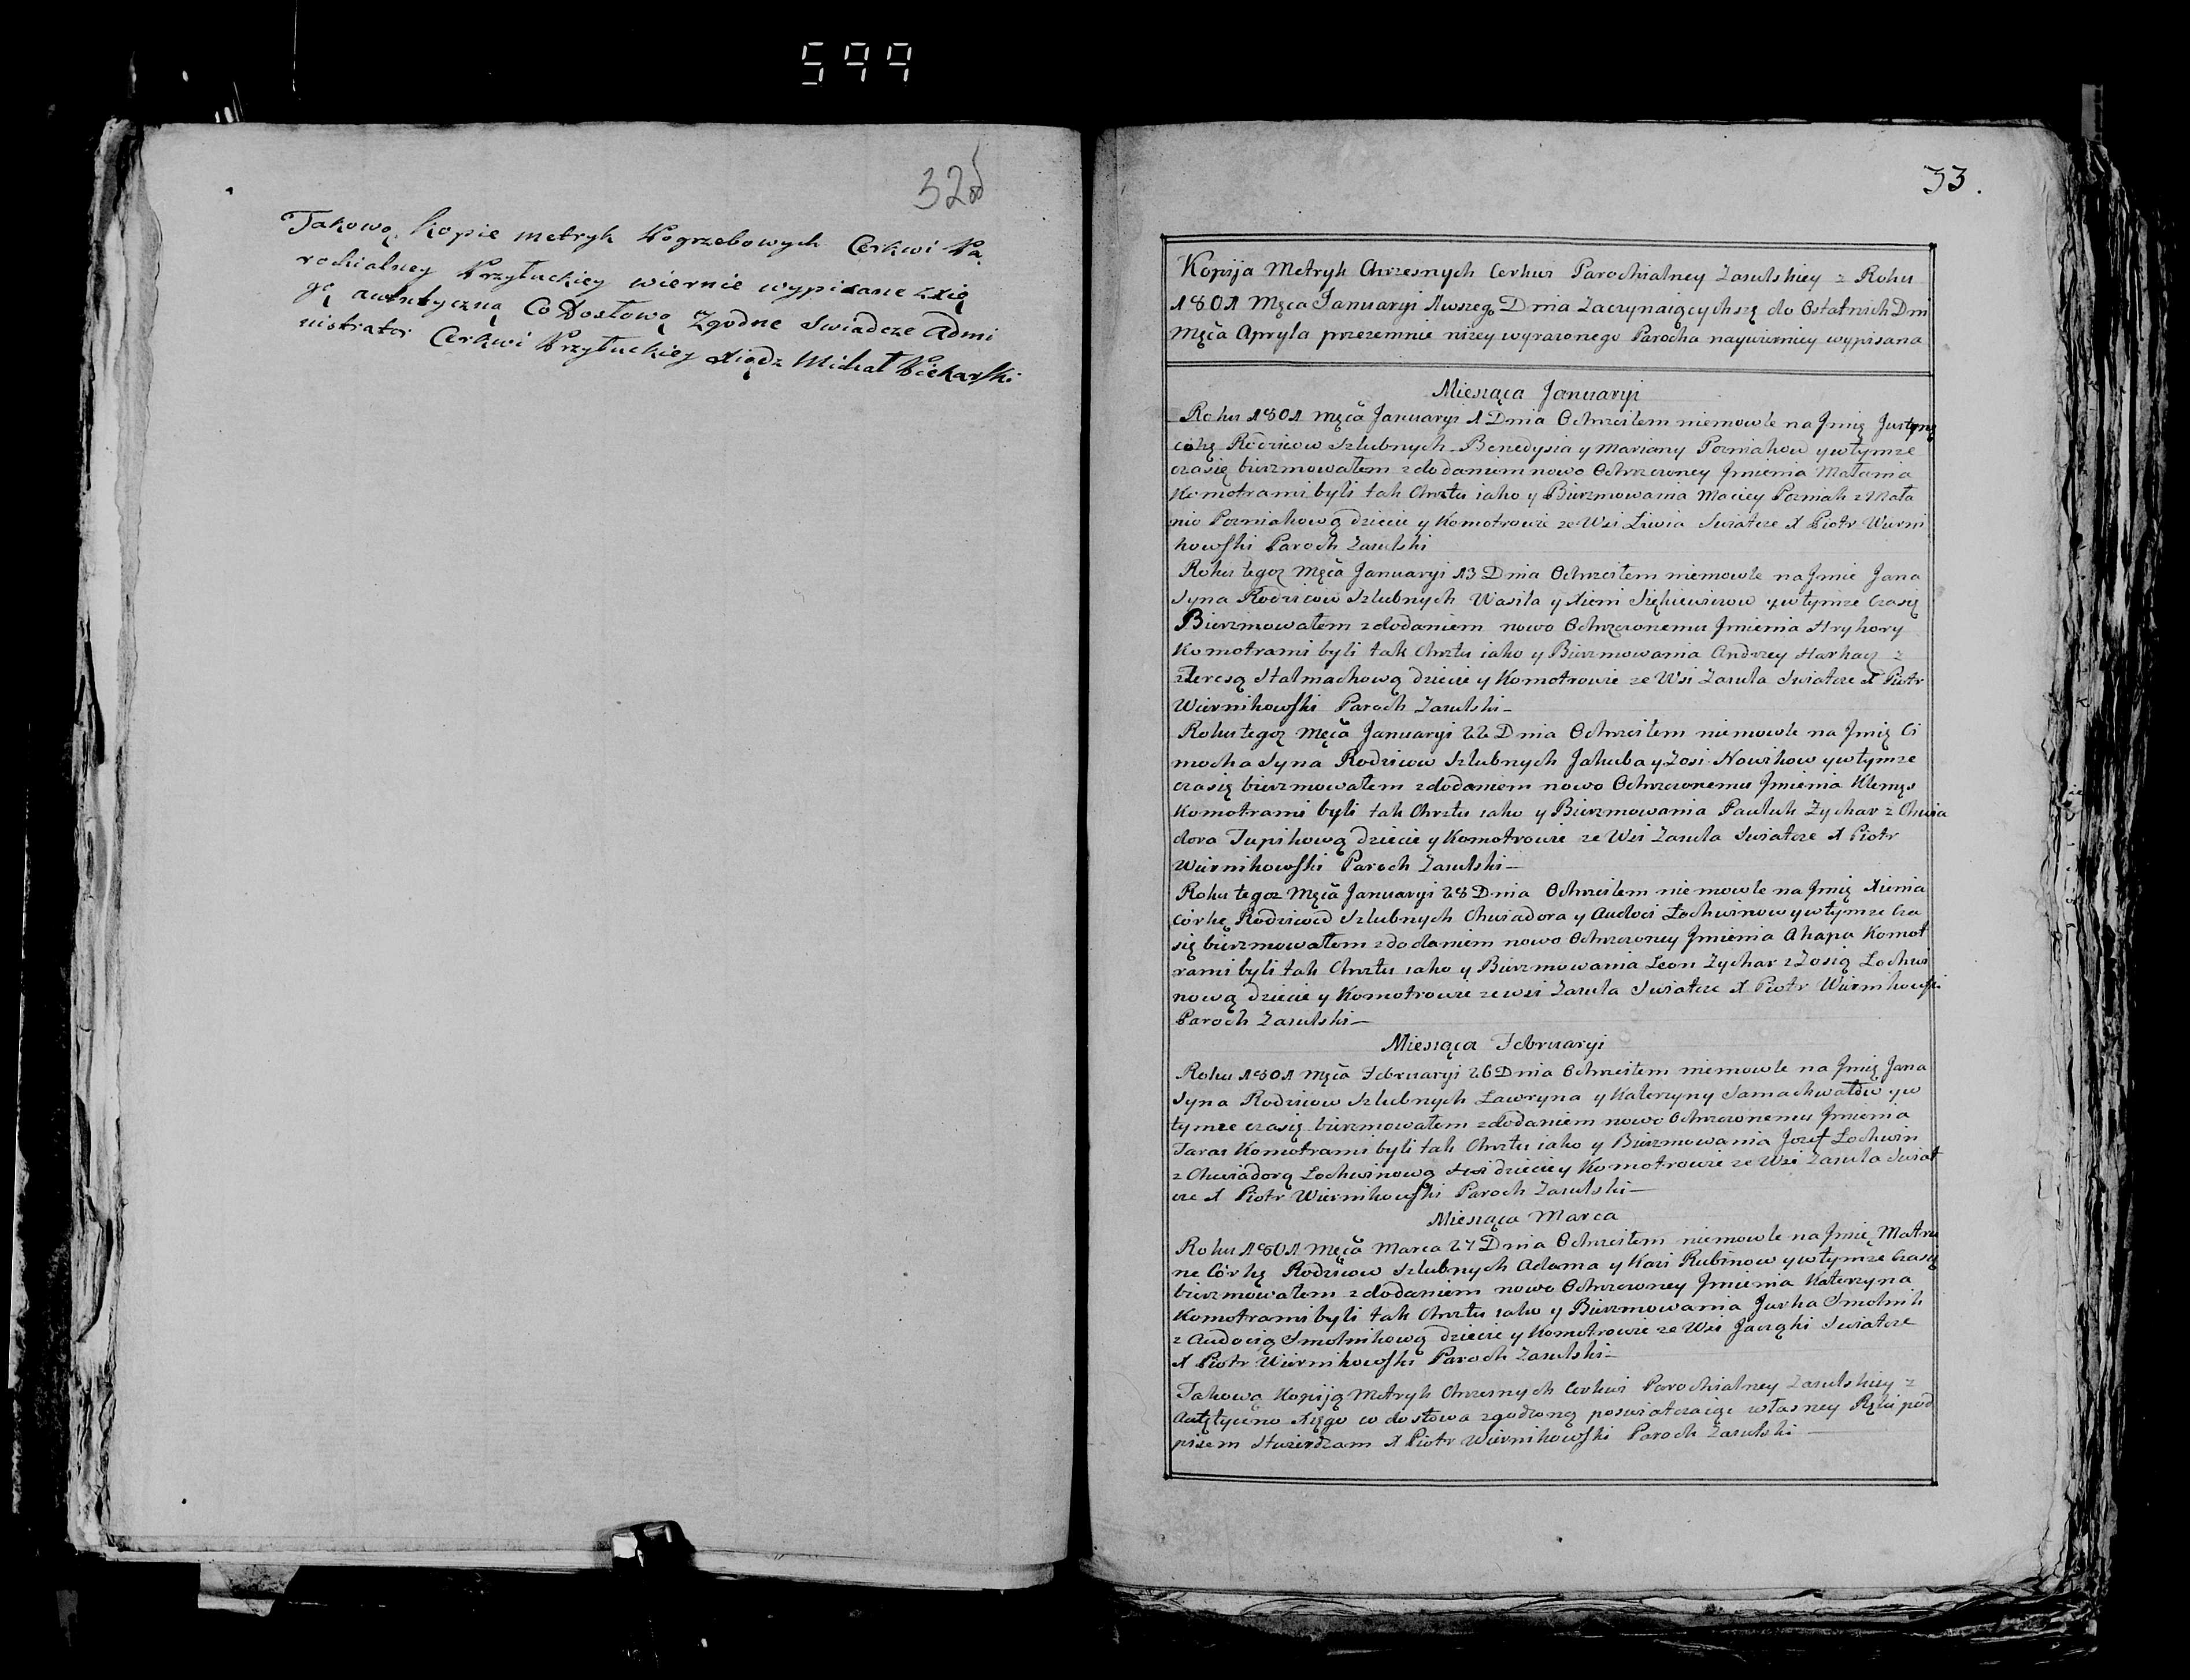 599
32 об
Takową Kopie metryk Pogrzebowych Cerkwi Pa
rochialney Przyłuckiey wiernie wypisane z xię
gą autętyczną Co Dosłową Zgodne Swiadcze Admi
nistrator Cerkwi Przyłuckiey xiądz Michał Piekarski
33.
Kopija Metryk Chrzesnych Cerkwi Parochialney Zasulskiey z Roku
1801 Męca Januaryi 1wszego Dnia Zaczynaiącychsię do Ostatnich Dni
Męca Apryla przezemnie niżey wyrazonego Parocha naywierniey wypisana
Miesiąca Januaryi
Roku 1801 Męca Januaryi 1 Dnia Ochrzcilem niemowle na Jmię Justynę
córkę Rodzicow szlubnych Benedysia y Maryany Pozniakow y w tymze
czasię bierzmowałem z dodaniem nowo Ochrzczoney Jmienia Małania
Komotrami byli tak Chrztu iako y Bierzmowania Maciey Pozniak z Mała
nio Pozniakową dziecie y Komotrowie ze Wsi Liwia Swiatcze X Piotr Wierni
kowski Paroch Zasulski
Roku tegoz Męca Januaryi 13 Dnia Ochrzcilem niemowle na Jmie Jana
Syna Rodzicow szlubnych Wasila y Xieni Sieńkiewiczow y w tymze Czasię
Bierzmowałem z dodaniem nowo Ochrzczonemu Jmienia Hryhory
Komotrami byli tak Chrztu iako y Bierzmowania Andrzey Harkacz z
Teresą Stalmachową dziecie y Komotrowie ze Wsi Zasula Swiatcze X Piotr
Wiernikowski Paroch Zasulski
Roku tegoz Męca Januaryi 22 Dnia Ochrzcilem niemowle na Jmię Ci
mocha Syna Rodzicow szlubnych Jakuba y Zosi Nowikow y w tymze
czasię bierzmowałem z dodaniem nowo Ochrzczonemu Jmienia Klemęs
Komotrami byli tak Chrztu iako y Bierzmowania Pauluk Zychar z Chwia
dora Tupikową dziecie y Komotrowie ze Wsi Zasula Swiatcze X Piotr
Wiernikowski Paroch Zasulski
Roku tegoz Męca Januaryi 28 Dnia Ochrzcilem niemowle na Jmię Xienia
córkę Rodzicow szlubnych Chwiadora y Audoci Lochwinow y w tymze Cza
się bierzmowałem z dodaniem nowo Ochrzczoney Jmienia Ahapa Komot
rami byli tak Chrztu iako y Bierzmowania Leon Zychar z Zosią Lochwi
nową dziecie y Komotrowie ze wsi Zasula Swiatcze X Piotr Wiernikowski
Paroch Zasulski
Miesiąca Februaryi
Roku 1801 Męca Februaryi 26 Dnia Ochrzcilem niemowle na Jmię Jana
Syna Rodzicow szlubnych Lawryna y Kateryny Samachwałow y w
tymze czasię bierzmowałem z dodaniem nowo Ochrzczonemu Jmienia
Taras Komotrami byli tak Chrztu iako y Bierzmowania Jozef Lochwin
z Chwiadorą Lochwinową dziecie y Komotrowie ze Wsi Zasula Swiat
cze X Piotr Wiernikowski Paroch Zasulski
Miesiąca Marca
Roku 1801 Męca Marca 27 Dnia Ochrzcilem niemowle na Jmię Matru
ne Córkę Rodzicow szlubnych Adama y Kasi Rubinow y w tymze Czasię
bierzmowałem z dodaniem nowo Ochrzczoney Jmienia Katerzyna
Komotrami byli tak Chrztu iako y Bierzmowania Jurka Smolnik
z Audocią Smolnikową dziecie y Komotrowie ze Wsi Jacząki Swiatcze
X Piotr Wiernikowski Paroch Zasulski
Takową Kopiją Metryk Chrzesnych Cerkwi Parochialney Zasulskiey z
Autętyczno Xięgo co do słowa zgodzoną poswiatczaiąc własney Ręki pod
pisem Stwierdzam X Piotr Wiernikowski Paroch Zasulski